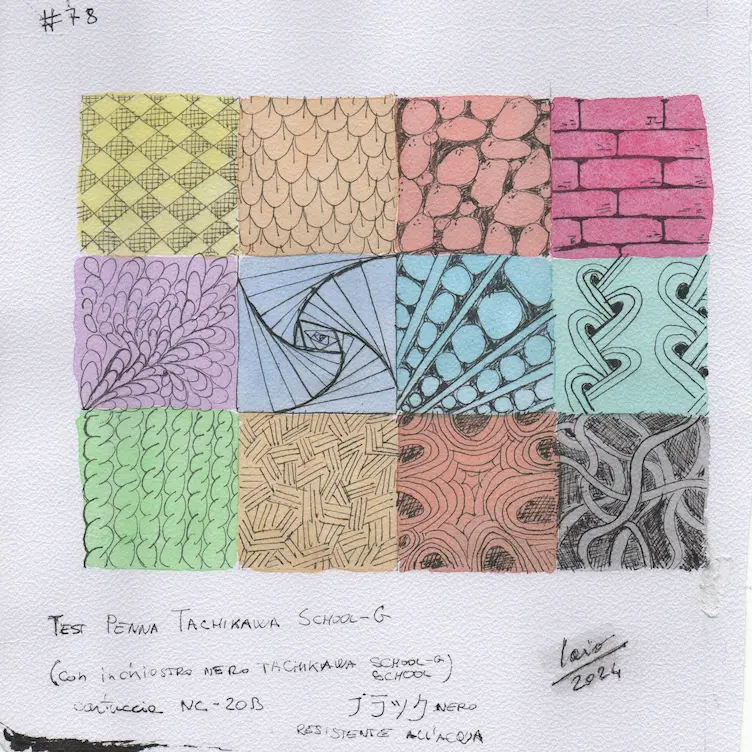 #78
TEST PENNA TACHIKAWA SCHOOL-G
(con inchiostro NERO TACHIKAWA SCHOOL-G)
SCHOOL
cartuccia NC-20B ブラック NERO
RESISTENTE ALL'ACQUA
2024